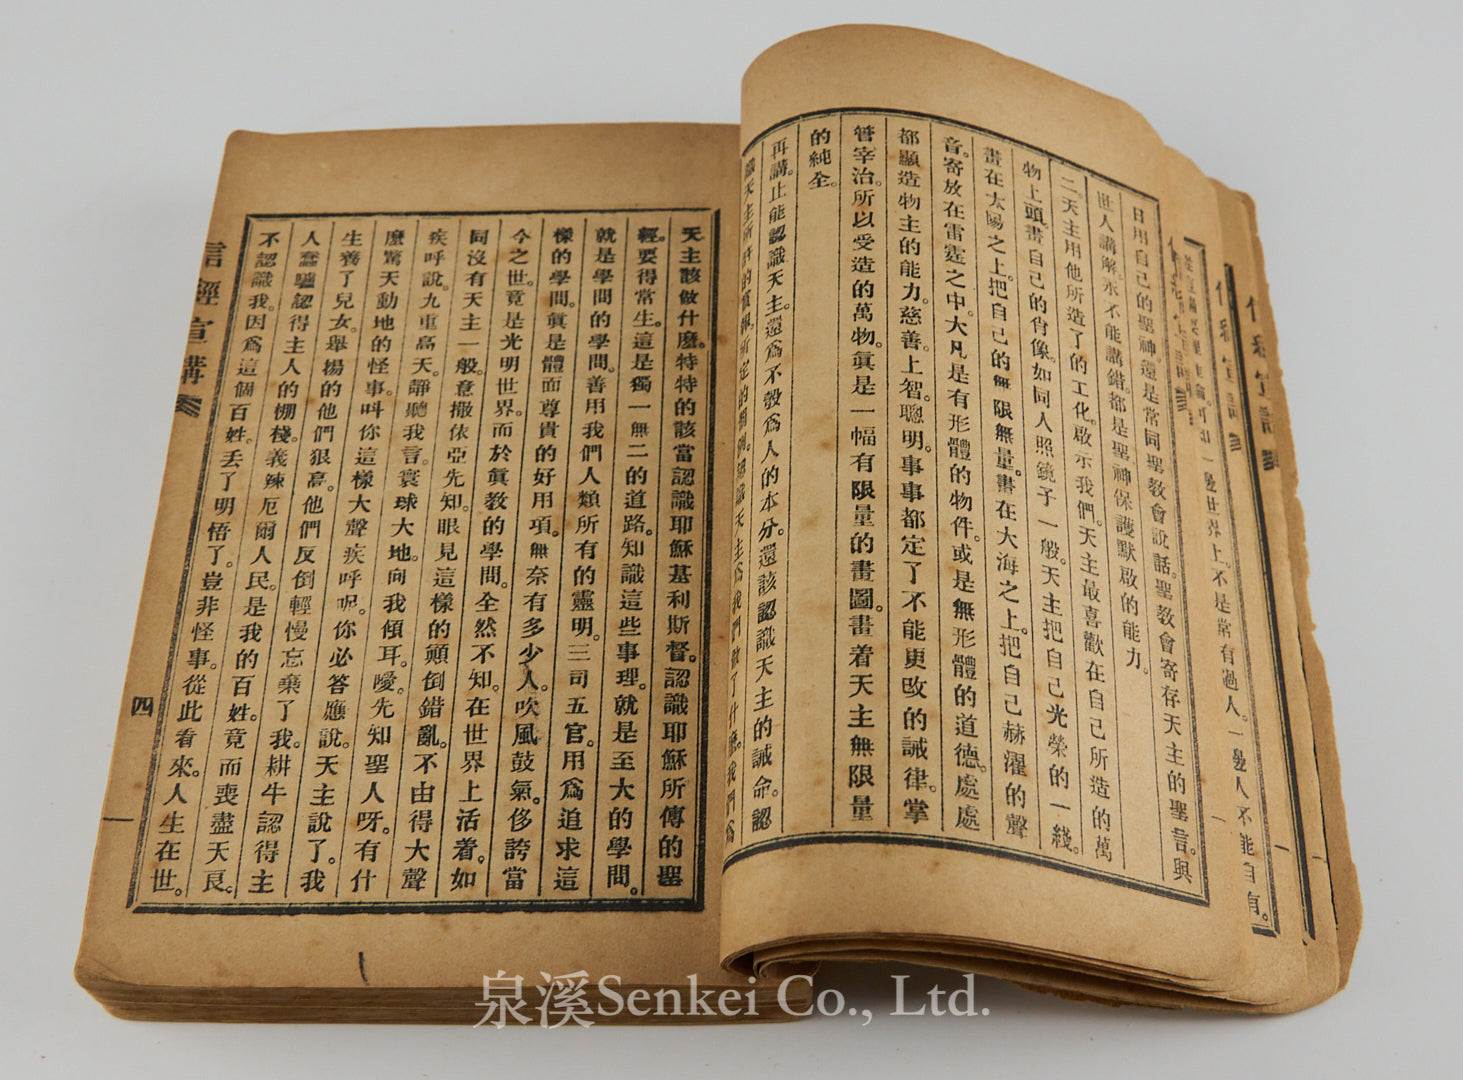 日用自己的聖神還是常同聖教會說話。聖教會寄存天主的聖言。與
世人講解。永不能講錯。都是聖神保護默啟的能力。
二。天主用他所造了的工化。啟示我們。天主最喜歡在自己所造的萬
物上頭。書自己的肖像。如同人照鏡子一般。天主把自己光榮的一綫。
畫在太陽之上。把自己的無限無量。書在大海之上。把自己赫濯的聲
音。寄放在雷霆之中。大凡是有形體的物件。或是無形體的道德。處處
都顯造物主的能力。慈善。上智。聰明。事事都定了不能更改的誡律。掌
管宰治。所以受造的萬物。眞是一幅有限量的畫圖。畫着天主無限量
的純全。
再講。止能認識天主。還爲不彀爲人的本分。還該認識天主的誡命。認
天主該做什麽。特特的該當認識耶穌基利斯督。認識耶穌所傳的聖
經。要得常生。這是獨一無二的道路。知識這些事理。就是至大的學問。
就是學問的學問。善用我們人類所有的靈明。三司五官。用爲追求這
樣的學問。眞是體面而尊貴的好用項。無奈有多少人。吹風鼓氣。侈誇當
今之世。竟是光明世界。而於眞教的學問。全然不知。在世界上活着。如
同沒有天主一般。意撒依亞先知。眼見這樣的顚倒錯亂。不由得大聲
疾呼說。九重高天。靜聽我言。寰球大地。向我傾耳。噯。先知聖人呀。有什
麽驚天動地的怪事。呌你這樣大聲疾呼呢。你必答應說。天主說了。我
生養了兒女。舉揚的他們狠高。他們反倒輕慢忘棄了我。耕牛認得主
人。蠢驢認得主人的棚棧。義辣厄爾人民。是我的百姓。竟而喪盡天良。
不認識我。因爲這個百姓。丢了明悟了。豈非怪事。從此看來。人生在世。
信經直講
四
泉溪Senkei Co., Ltd.